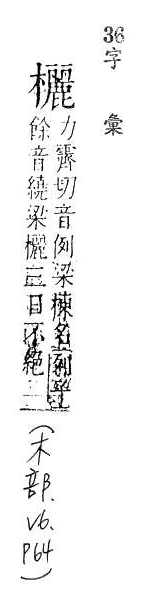 36
字彙
欐
力霽切音例梁棟名列子
餘音繞梁欐三日不絕
(木部. V6. P64)